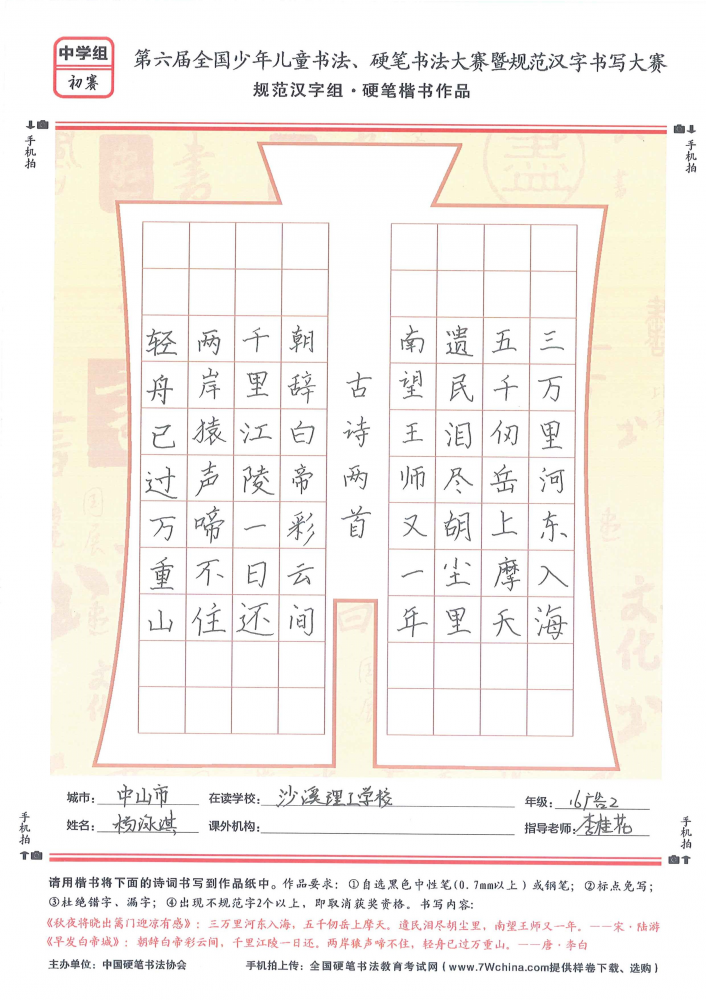 中学组
初赛
第六届全国少年儿童书法、硬笔书法大赛暨规范汉字书写大赛
规范汉字组·硬笔楷书作品
手机拍
手机拍
三万里河东入海
五千仞岳上摩天
遗民泪尽胡尘里
南望王师又一年
古诗两首
朝辞白帝彩云间
千里江陵一日还
两岸猿声啼不住
轻舟已过万重山
城市：中山市 在读学校：沙溪理工学校 年级：16广告2
姓名：杨泳淇 课外机构： 指导老师：李桂花
手机拍
手机拍
请用楷书将下面的诗词书写到作品纸中。作品要求：①自选黑色中性笔(0.7mm以上）或钢笔；②标点免写；
③杜绝错字、漏字；④出现不规范字2个以上，即取消获奖资格。书写内容：
《秋夜将晓出篱门迎凉有感》：三万里河东入海，五千仞岳上摩天。遗民泪尽胡尘里，南望王师又一年。——宋·陆游
《早发白帝城》：朝辞白帝彩云间，千里江陵一日还。两岸猿声啼不住，轻舟已过万重山。——唐·李白
主办单位：中国硬笔书法协会 手机拍上传：全国硬笔书法教育考试网（www.7Wchina.com提供样卷下载、选购）